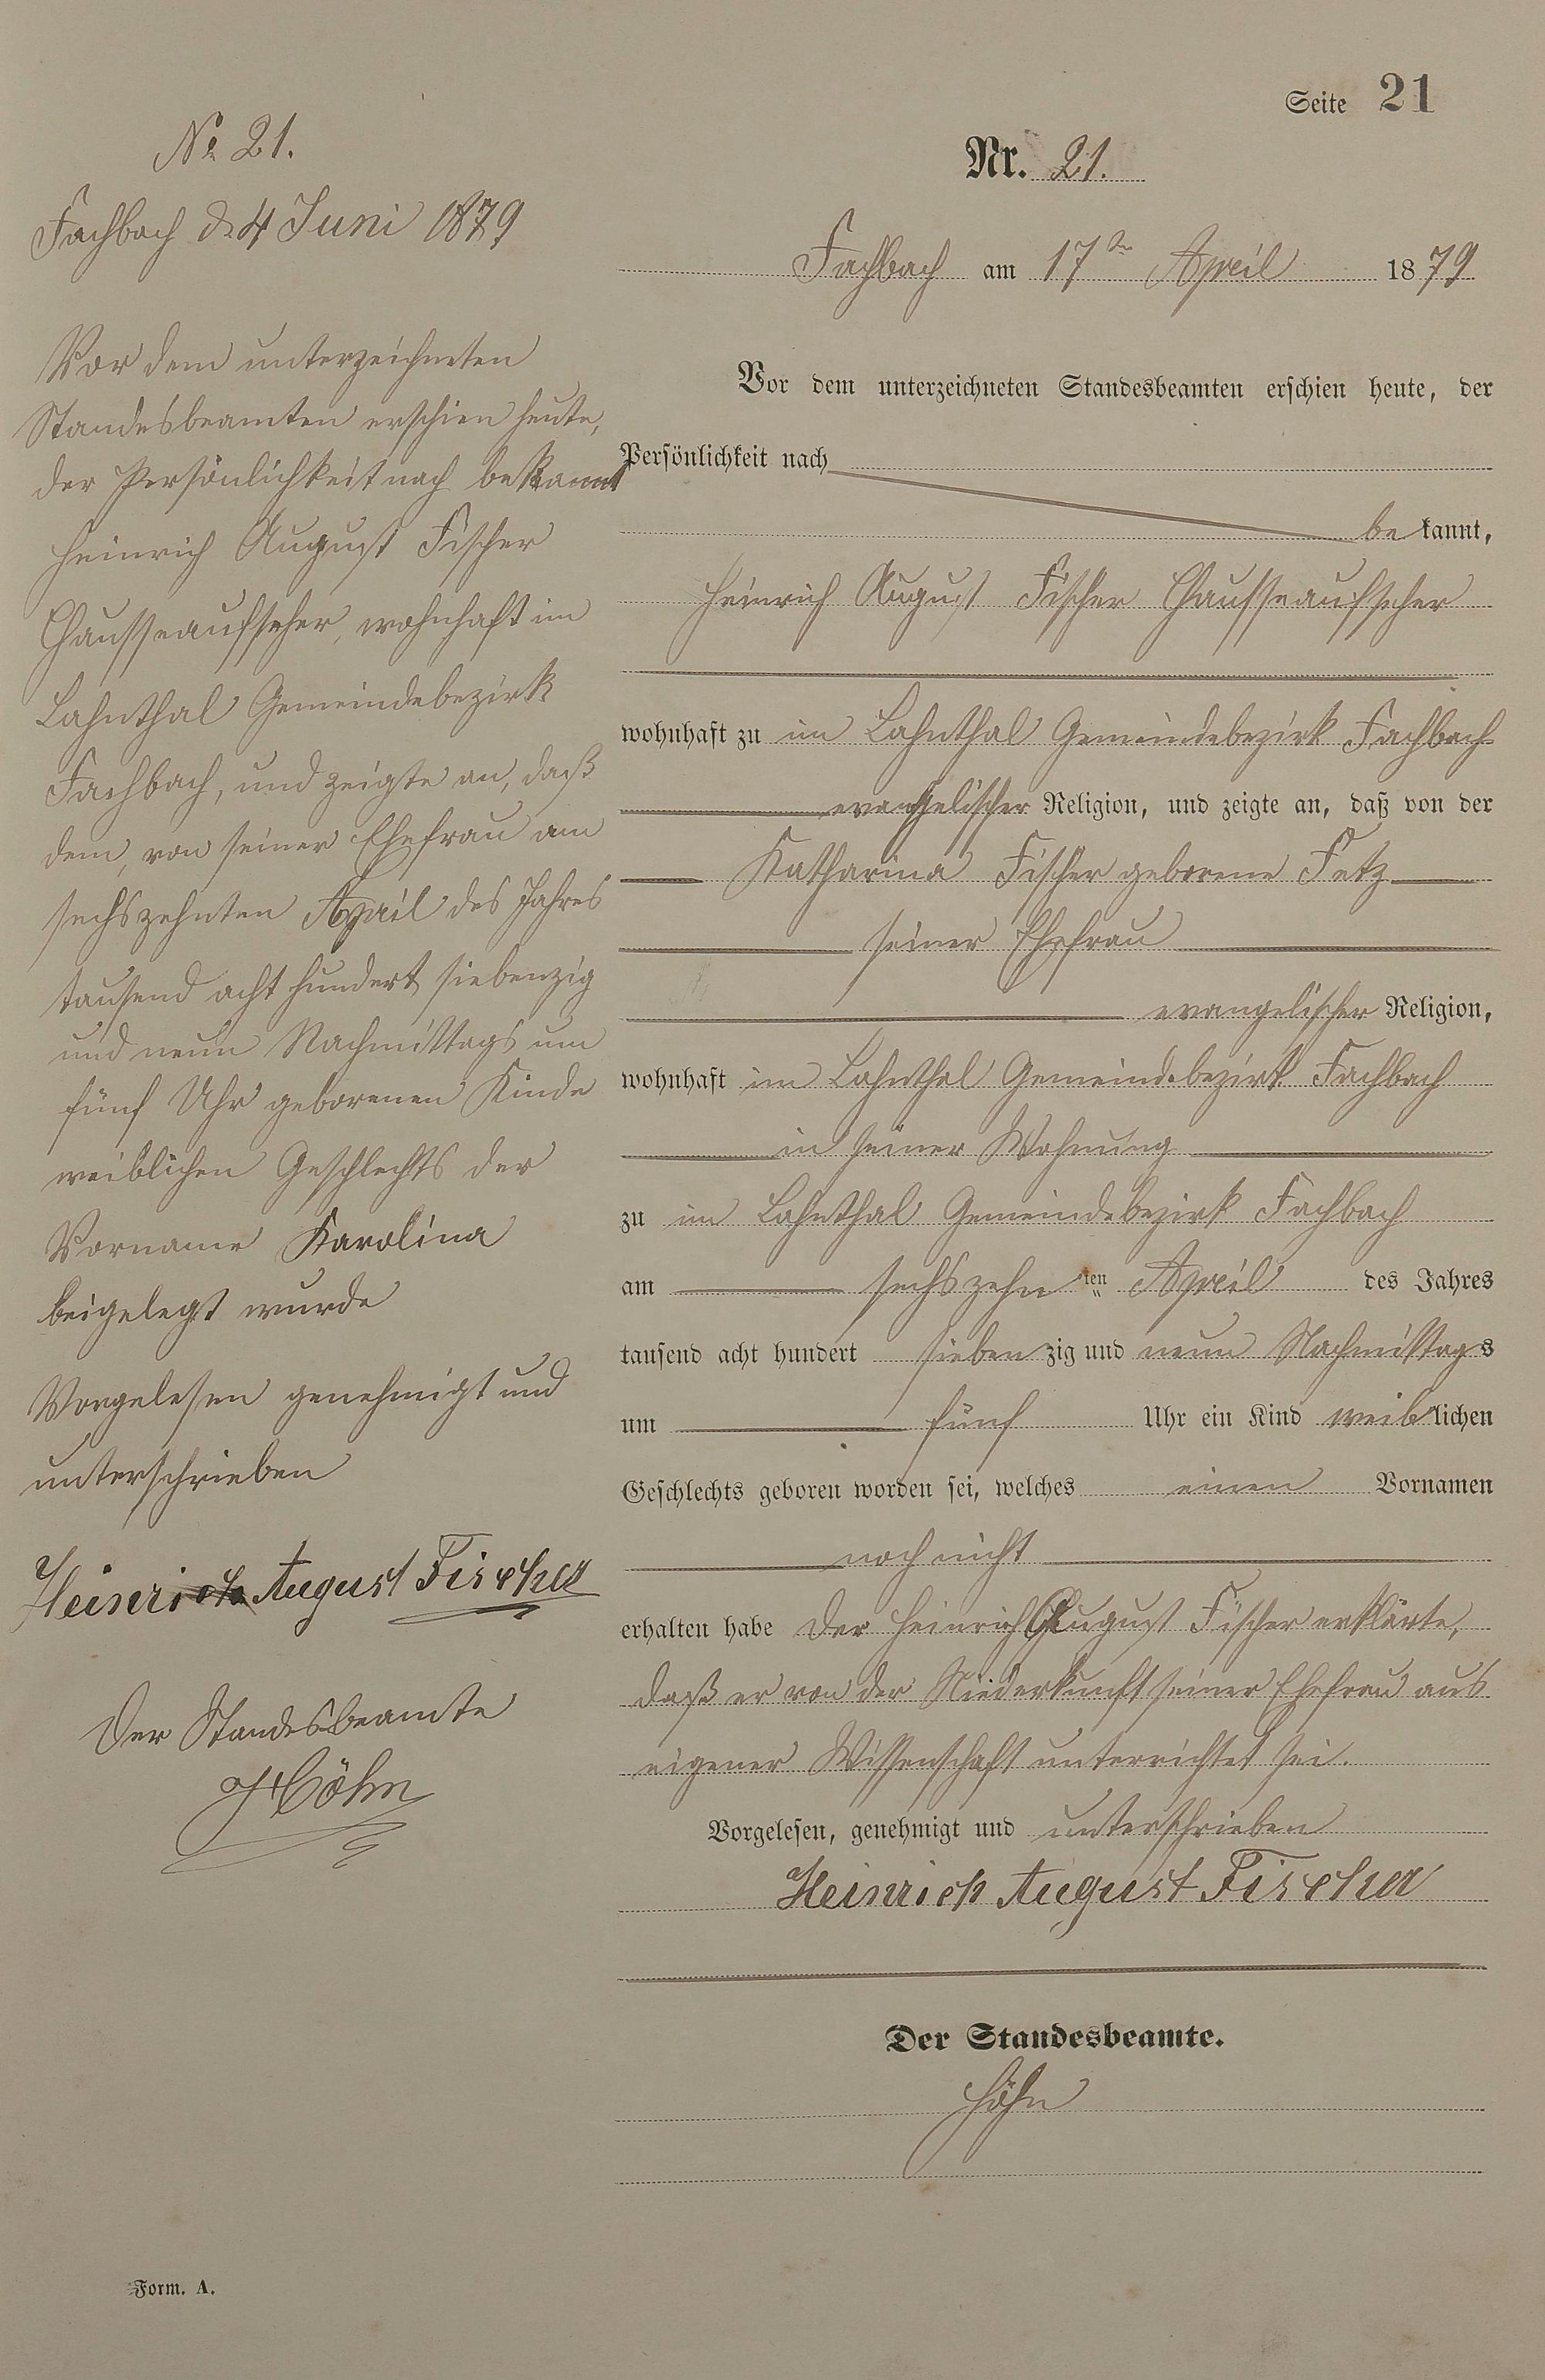 Seite 21
No 21.
Fachbach d. 4 Juni 1879
Vor dem unterzeichneten
Standesbeamten erschien heute,
der Persönlichkeit nach bekannt
Heinrich August Fischer
Chausseaufseher, wohnhaft im
Lahnthal Gemeindebezirk
Fachbach, und zeigte an, daß
dem, von seiner Ehefrau am
sechszehnten April des Jahres
tausend acht hundert siebenzig
und neun Nachmittags um
fünf Uhr geborenen Kinde
weiblichen Geschlechts der
Vorname Karolina
beigelegt wurde
Vorgelesen genehmigt und
unterschrieben
Heinrich August Fischer
Der Standesbeamte
Höhn
Nr. 21.
Fachbach am 17ten April 1879
Vor dem unterzeichneten Standesbeamten erschien heute, der
Persönlichkeit nach
be kannt,
Heinrich August Fischer Chausseaufseher
wohnhaft zu im Lahnthal Gemeindebezirk Fachbach
evangelischer Religion, und zeigte an, daß von der
Katharina Fischer geborene Fetz
seiner Ehefrau
evangelischer Religion,
wohnhaft im Lahnthal Gemeindebezirk Fachbach
in seiner Wohnung
zu im Lahnthal Gemeindebezirk Fachbach
am sechszehn ten April des Jahres
tausend acht hundert sieben zig und neun Nachmittags
um fünf Uhr ein Kind weiblichen
Geschlechts geboren worden sei, welches einen Vornamen
noch nicht
erhalten habe Der Heinrich August Fischer erklärte,
daß er von der Niederkunft seiner Ehefrau aus
eigener Wissenschaft unterrichtet sei.
Vorgelesen, genehmigt und unterschrieben
Heinrich August Fischer
Der Standesbeamte.
Höhn
Form. A.